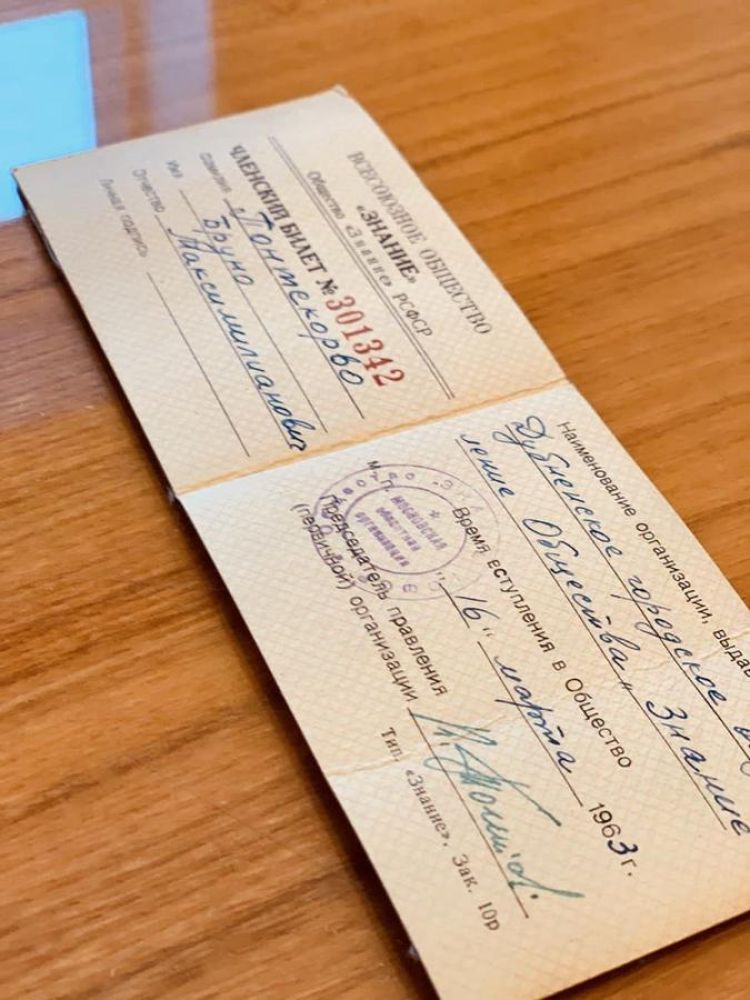 ВСЕСОЮЗНОЕ ОБЩЕСТВО
«ЗНАНИЕ»
Общество «Знание» РСФСР
ЧЛЕНСКИЙ БИЛЕТ № 301342
Фамилия Понтекорво
Имя Бруно
Отчество Максимилианович
Личная подпись
Наименование организации, выдав
Дубненское городское
ление Общества „Знание
Время вступления в Общество
„16“ марта 1963 г.
М. П.
МОСКОВСКАЯ
областная
организация
Председатель правления
(первичной) организации
Тип. «Знание», Зак. 10р